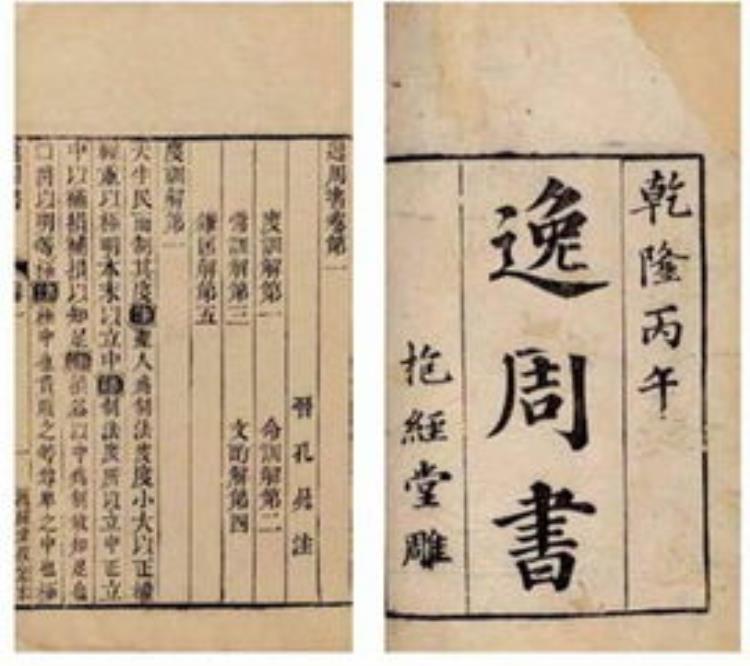 乾隆丙午
逸周書
抱經堂雕
逸周書卷第一
晉 孔晁 注
度訓解第一 命訓解第二
常訓解第三 文酌解第四
糴匡解第五
度訓解第一
天生民而制其度注聖人爲制法度度小大以正權
輕重以極明本末以立中注制法度所以立中正立
中以補損補損以知足注損益以中爲制故知足也
口爵以明等極注極中也貴賤之等尊卑之中也極
一 抱經堂校定本